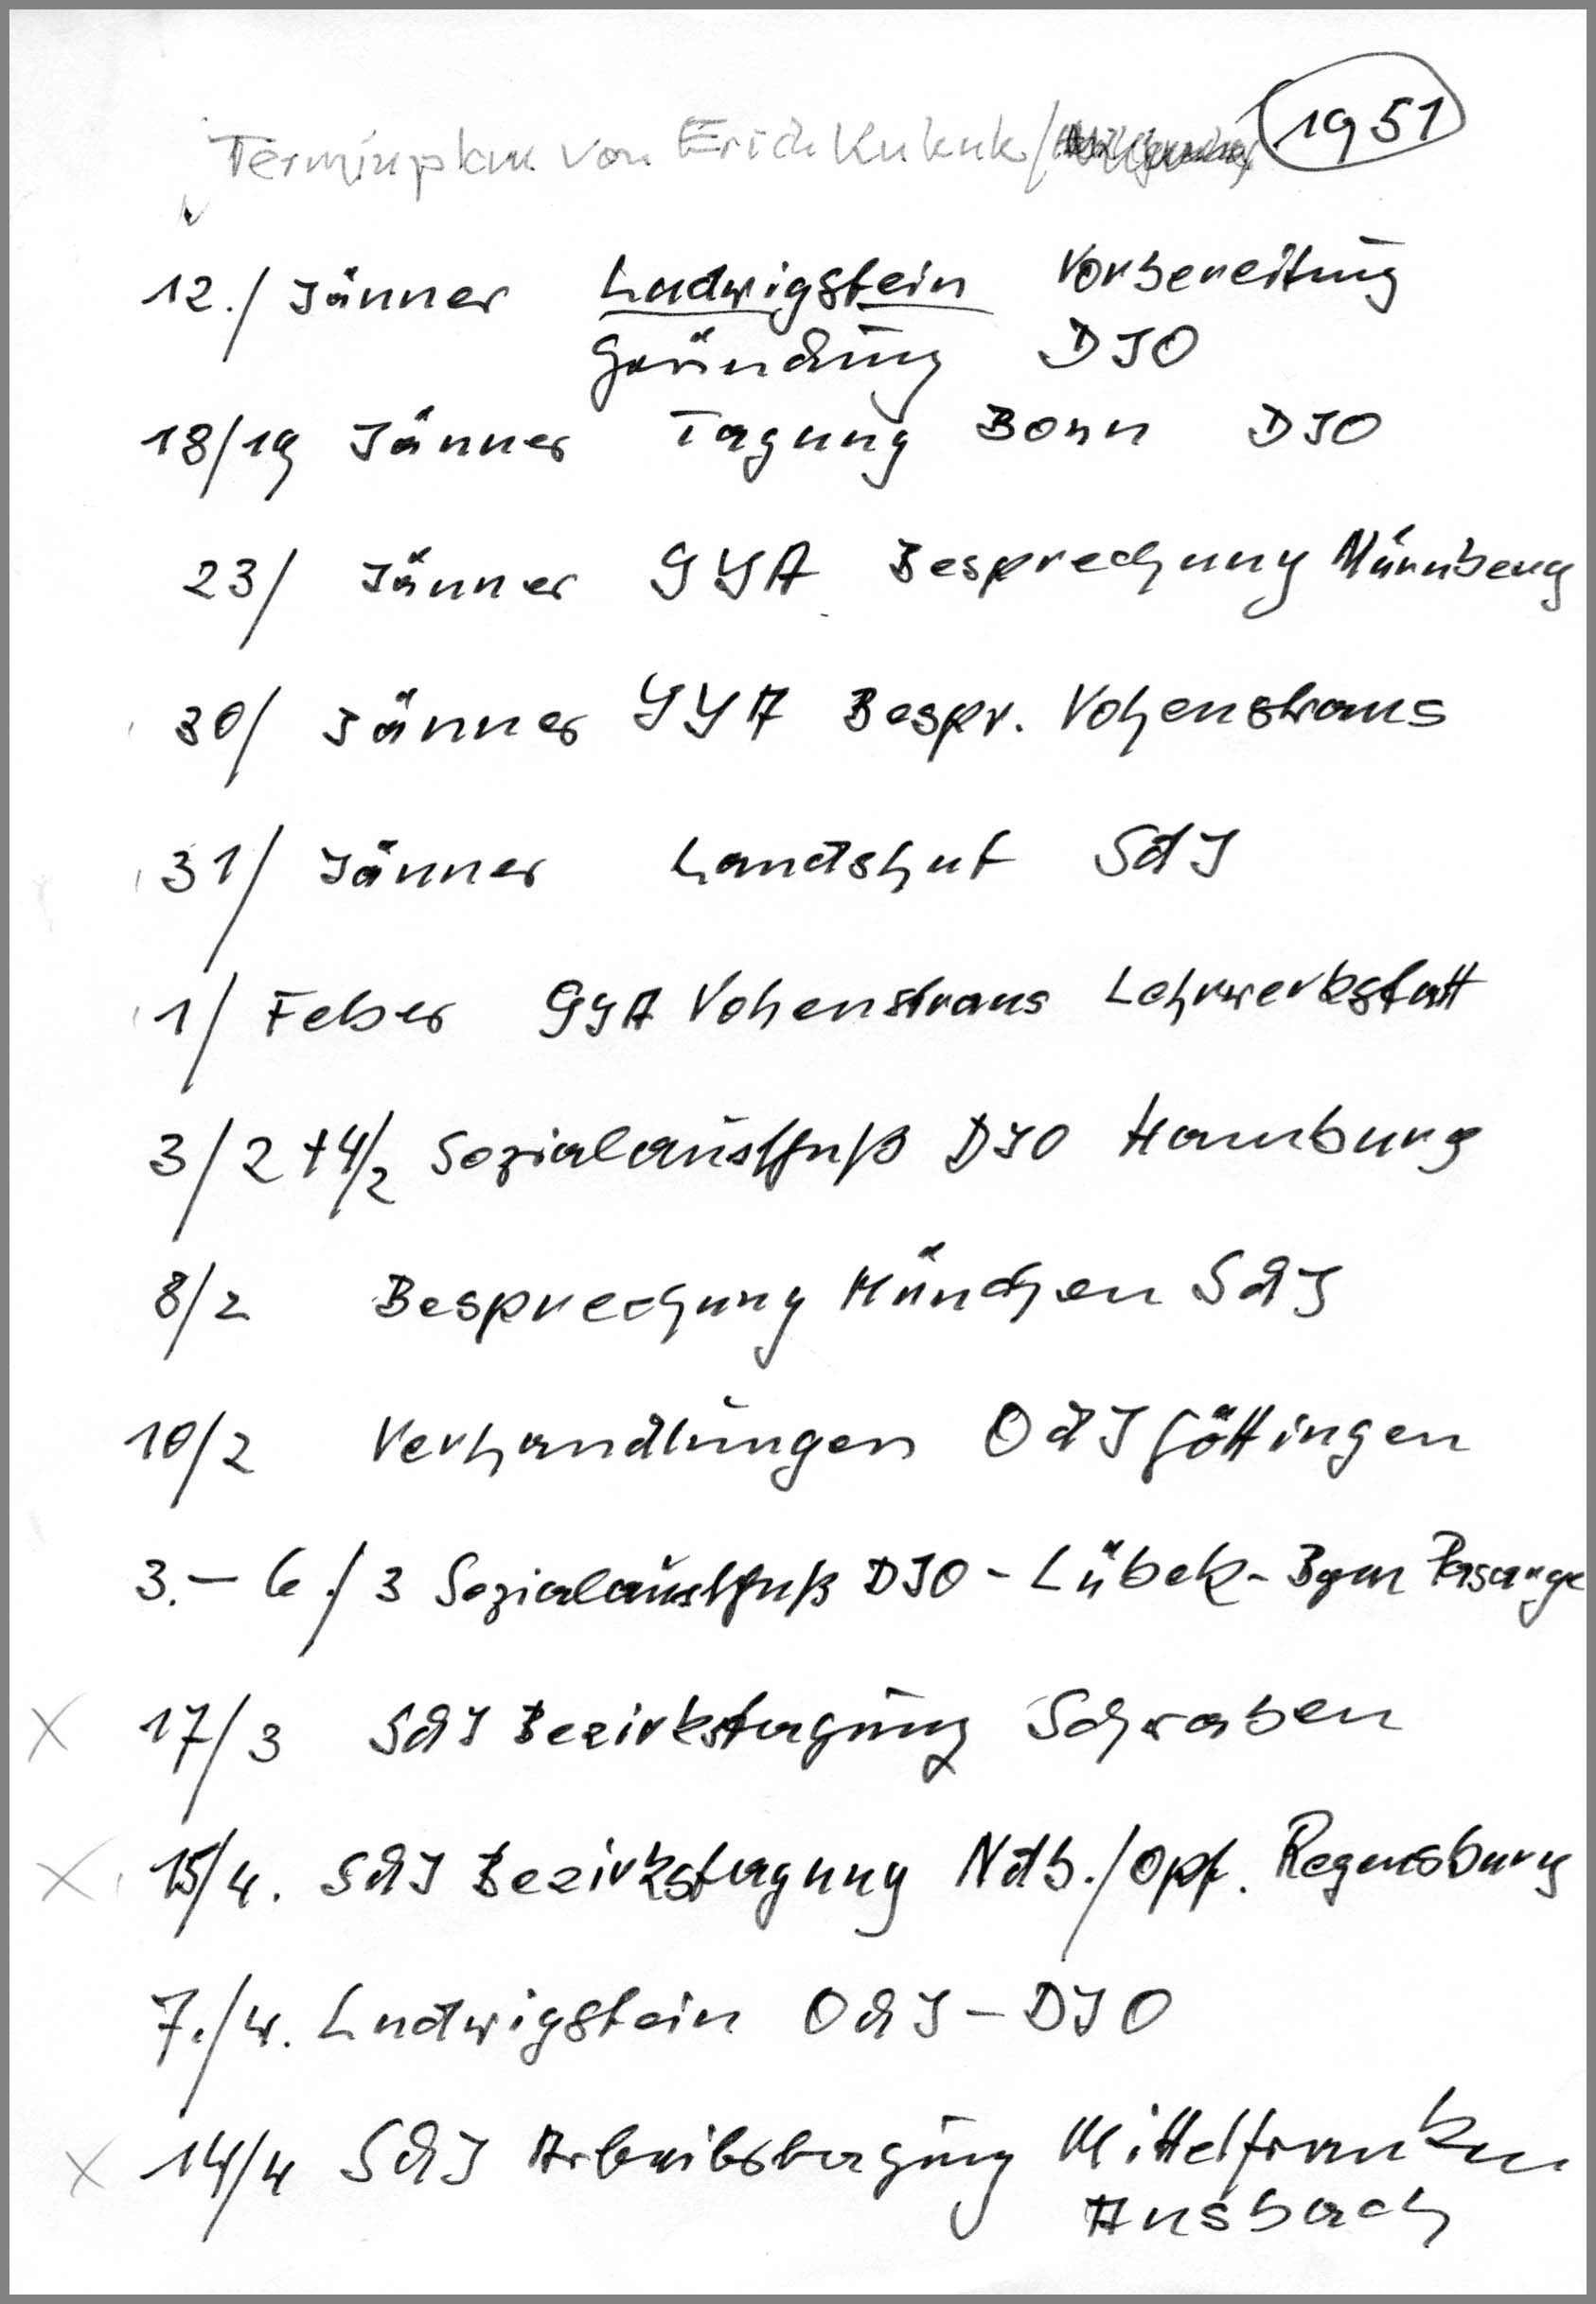 Terminplan von Erich Kukuk / 1951
12./ Jänner Ludwigstein Vorbereitung
Gründung DJO
18/19 Jänner Tagung Bonn DJO
23/ Jänner GYA Besprechung Nürnberg
30/ Jänner GYA Bespr. Vohenstraus
31/ Jänner Landshut SdJ
1/ Feber GYA Vohenstraus Lehrwerkstatt
3/2 + 4/2 Sozialausschuß DJO Hamburg
8/2 Besprechung München SdJ
10/2 Verhandlungen OdJ Göttingen
3. – 6./3 Sozialausschuß DJO - Lübek - Bgm Pasarge
X 17/3 SdJ Bezirkstagung Schwaben
X 15/4. SdJ Bezirkstagung Ndb./Opf. Regensburg
7./4. Ludwigstein OdJ – DJO
X 14/4 SdJ Arbeitstagung Mittelfranken
Ansbach